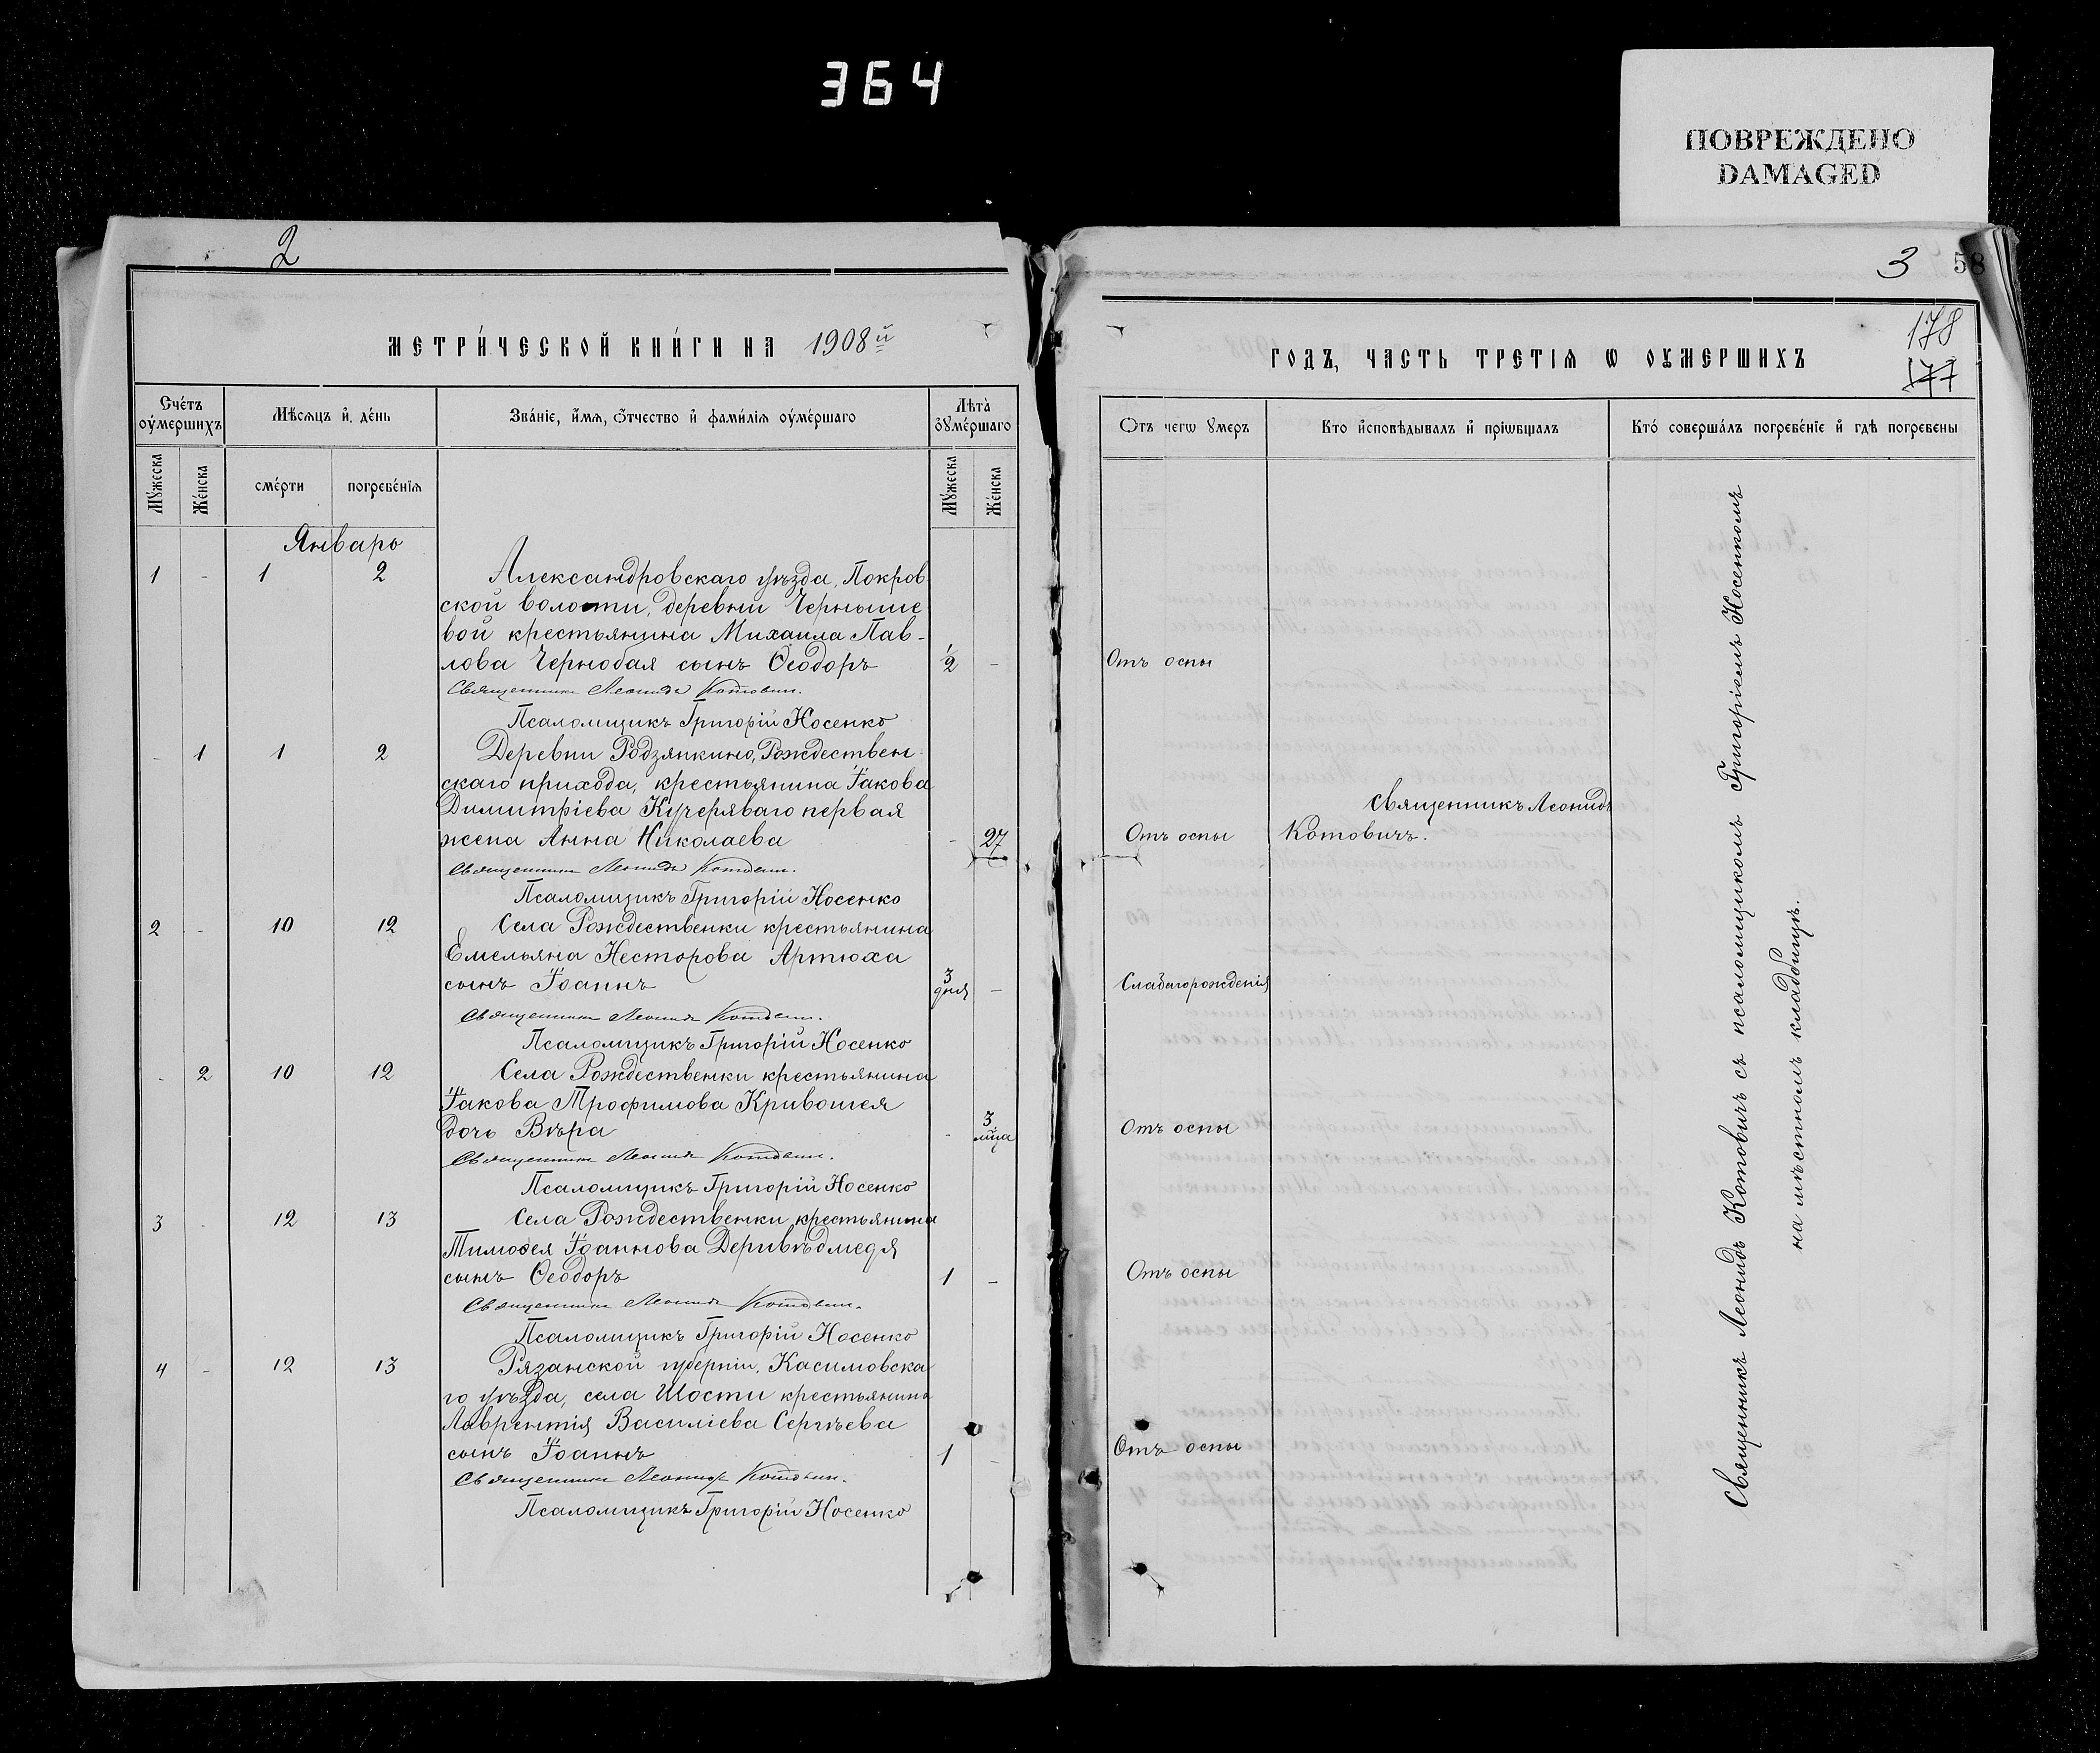 364
ПОВРЕЖДЕНО
DAMAGED
2
МЕТРИ́ЧЕСКОЙ КНИ́ГИ НА 1908й
Сче́тъ ᲂу҆́мершихъ
Мѣсѧцъ и҆ де́нь
Зва́нїе, и҆́мѧ, ѻ҆́тчество и҆ фами́лїѧ ᲂу҆ме́ршаго
Лѣта̀ ᲂу҆ме́ршаго
Мꙋ́жеска
Же́нска
сме́рти
погребе́нїѧ
Мꙋ́жеска
Же́нска
Январь
1 - 1 2 Александровскаго уѣзда, Покров-
ской волости, деревни Черныше
вой крестьянина Михаила Пав-
лова Чернобая сынъ Ѳеодоръ 1/2 -
Священникъ Леонидъ Котовичъ.
Псаломщикъ Григорій Носенко
- 1 1 2 Деревни Родзянкино, Рождествен-
скаго прихода, крестьянина Іакова
Димитріева Кучеряваго первая
жена Анна Николаева - 27
Священникъ Леонидъ Котовичъ.
Псаломщикъ Григорій Носенко
2 - 10 12 Села Рождественки крестьянина
Емельяна Несторова Артюха
сынъ Іоаннъ 3 дня -
Священникъ Леонидъ Котовичъ.
Псаломщикъ Григорій Носенко
- 2 10 12 Села Рождественки крестьянина
Іакова Трофимова Кривошея
дочь Вѣра - 3 м̃ца
Священникъ Леонидъ Котовичъ.
Псаломщикъ Григорій Носенко
3 - 12 13 Села Рождественки крестьянина
Тимоѳея Іоаннова Деривѣдмедя
сынъ Ѳеодоръ 1 -
Священникъ Леонидъ Котовичъ.
Псаломщикъ Григорій Носенко
4 - 12 13 Рязанской губерніи, Касимовска
го уѣзда, села Шости крестьянина
Лаврентія Василіева Сергѣева
сынъ Іоаннъ 1 -
Священникъ Леонидъ Котовичъ.
Псаломщикъ Григорій Носенко
3 58
178
177
ГОДЪ, ЧАСТЬ ТРЕТІѦ Ѡ ОУМЕРШИХЪ
Ѿ чегѡ ᲂумеръ
Кто и҆сповѣдывалъ и҆ прїѡбщалъ
Кто́ соверша́лъ погребе́нїе и҆ гдѣ погребены
Отъ оспы
священникъ Леонидъ
Отъ оспы Котовичъ.
Слабагорожденія
Отъ оспы
Отъ оспы
Отъ оспы
Священникъ Леонидъ Котовичъ съ псаломщикомъ Григоріемъ Носенкомъ
на мѣстномъ кладбищѣ.